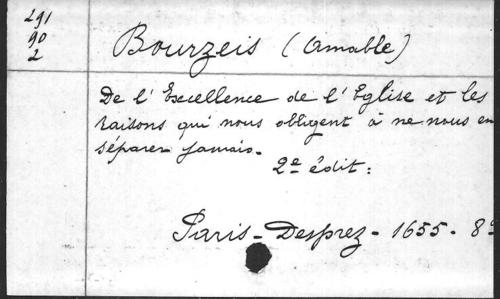 291
90
2
Bourzeis (Amable)
De l'Excellence de l'Eglise et les
raisons qui nous obligent à ne nous en
séparer jamais.
2e édit:
Paris - Desprez - 1655 - 8º